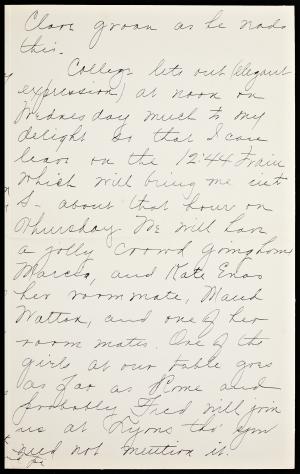 Clare groan as he reads
this.
College lets out (elegant
expression) at noon on
Wednesday much to my
delight so that I can
leave on the 12:44 train
which will bring me into
S- about that hour on
Thursday. We will have
a jolly crowd going home
Marcia, and Kate Enos
her roommate, Maud
Watton, and one of her
room mates. One of the
girls at our table goes
as far as Rome and
probably Fred will join
us at Lyons tho' you
need not mention it.